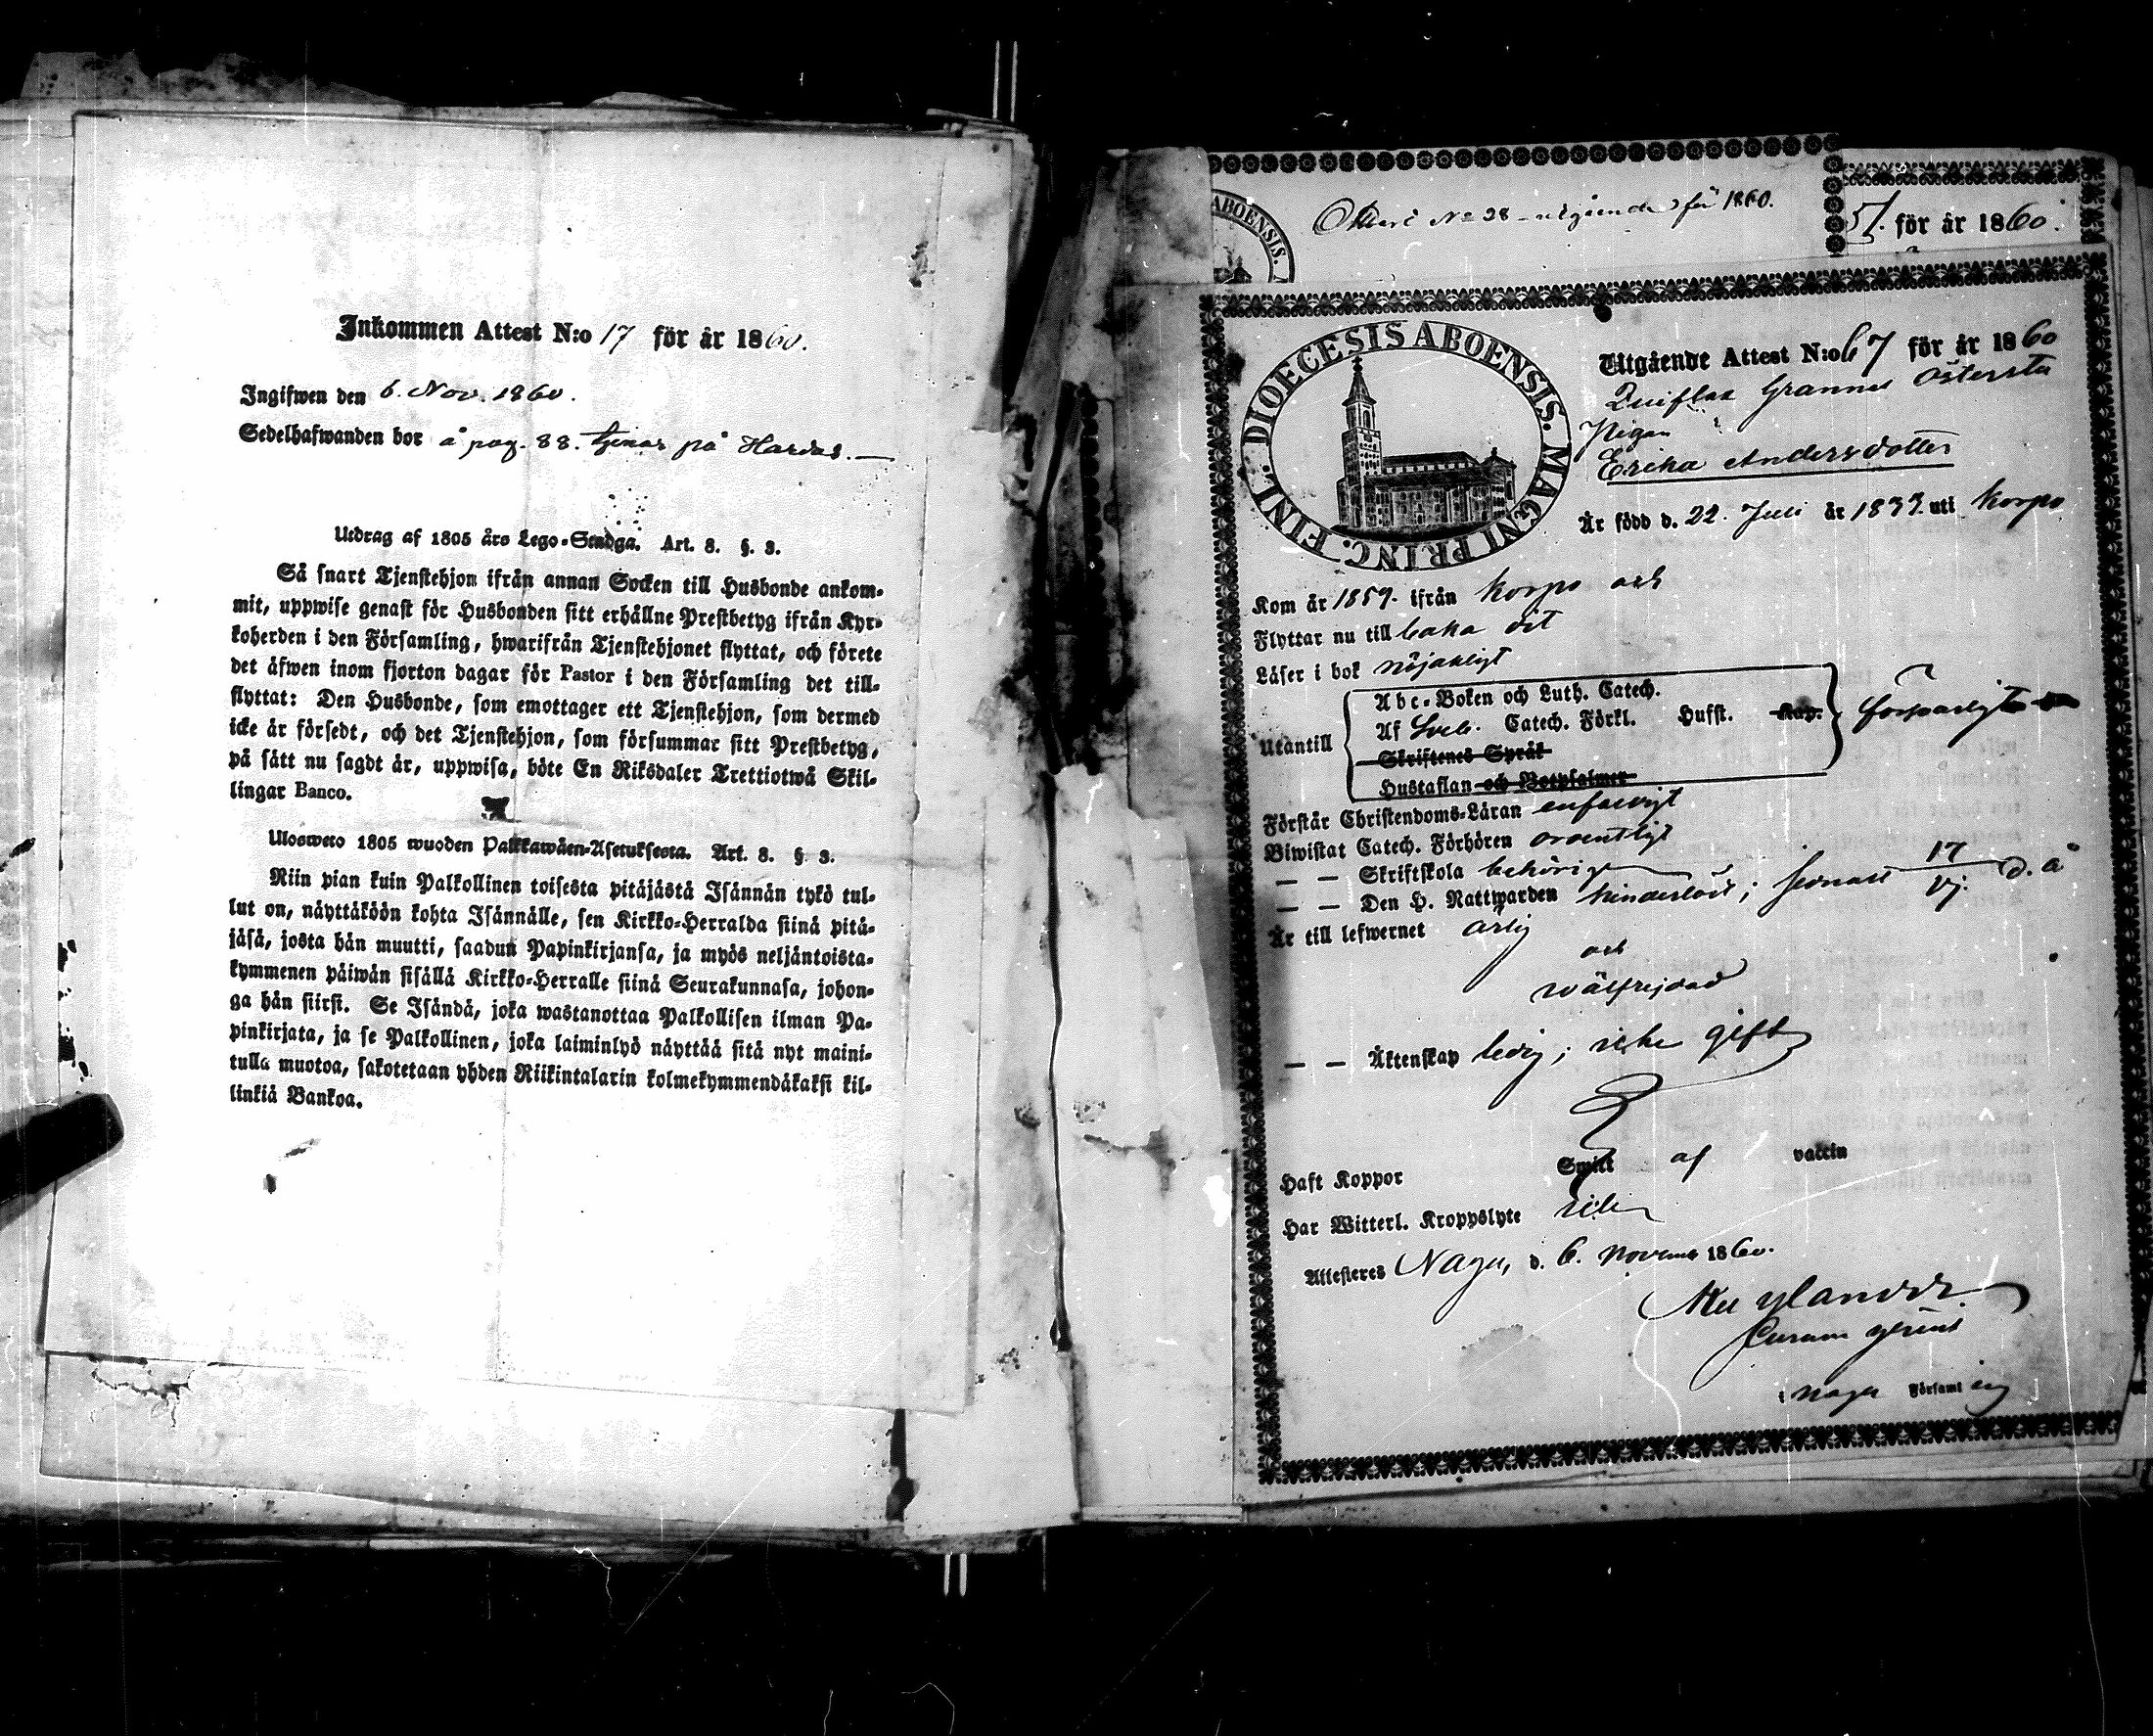 Inkommen Attest N:o 17 för år 1860.
Ingifwen den 6. Nov. 1860.
Sedelhafwanden bor å pag. 88. tjenar på
Utdrag af 1805 års Lego-Stadga. Art. 8. §. 3.
Så snart Tjenstehjon ifrån annan Socken till Husbonde ankom-
mit, uppwise genast för Husbonden sitt erhållne Prestbetyg ifrån Kyr-
koherden i den Församling, hwarifrån Tjenstehjonet flyttat, och förete
det äfwen inom fjorton dagar för Pastor i den Församling det till-
flyttat: Den Husbonde, som emottager ett Tjenstehjon, som dermed
icke är försedt, och det Tjenstehjon, som försummar sitt Prestbetyg,
på sätt nu sagdt är, uppwisa, böte En Riksdaler Trettiotwå Skil-
lingar Banco.
Ulosweto 1805 wuoden Palkkawäen-Asetuksesta. Art. 8. §. 3.
Niin pian kuin Palkollinen toisesta pitäjästä Isännän tykö tul-
lut on, näyttäköön kohta Isännälle, sen Kirkko-Herralda siinä pitä-
jäsä, josta hän muutti, saadun Papinkirjansa, ja myös neljäntoista-
kymmenen päiwän sisällä Kirkko-Herralle siinä Seurakunnasa, johon-
ga hän siirsi. Se Isändä, joka wastanottaa Palkollisen ilman Pa-
pinkirjata, ja se Palkollinen, joka laiminlyö näyttää sitä nyt maini-
tulla muotoa, sakotetaan yhden Riikintalarin kolmekymmendäkaksi kil-
linkiä Bankoa.
ABOENSIS.
N:o 28 utgående för 1860.
51. för år 1860.
DIOECESIS ABOENSIS. MAGNI PRINC. FINL.
Utgående Attest N:o 67 för år 1860
Grannes
Pigan
Erika Andersdotter
Är född d. 22. Juli år 1833. uti Korpo
Kom år 1859. ifrån Korpo och
Flyttar nu till baka dit
Läser i bok nöjakligt
Utantill
Abc-Boken och Luth. Catech.
Af Sveb. Catech. Förkl. Hufst. Kap.
Skriftenes Språk
Hustaflan och Botpsalmer
försvarligt
Förstår Christendoms-Läran enfaldigt
Biwistat Catech. Förhören ordentligt
— — Skriftskola behörigt
— — Den H. Nattwarden hinderlöst; senast 17/VI. d. å
Är till lefwernet ärlig
och
wälfrejdad
— — Äktenskap ledig; icke gift
Haft Koppor Smitt af vaccin
Har Witterl. Kroppslyte
Attesteras Nagu, d. 6. November 1860.
Curam gerens
i Nagu Församling